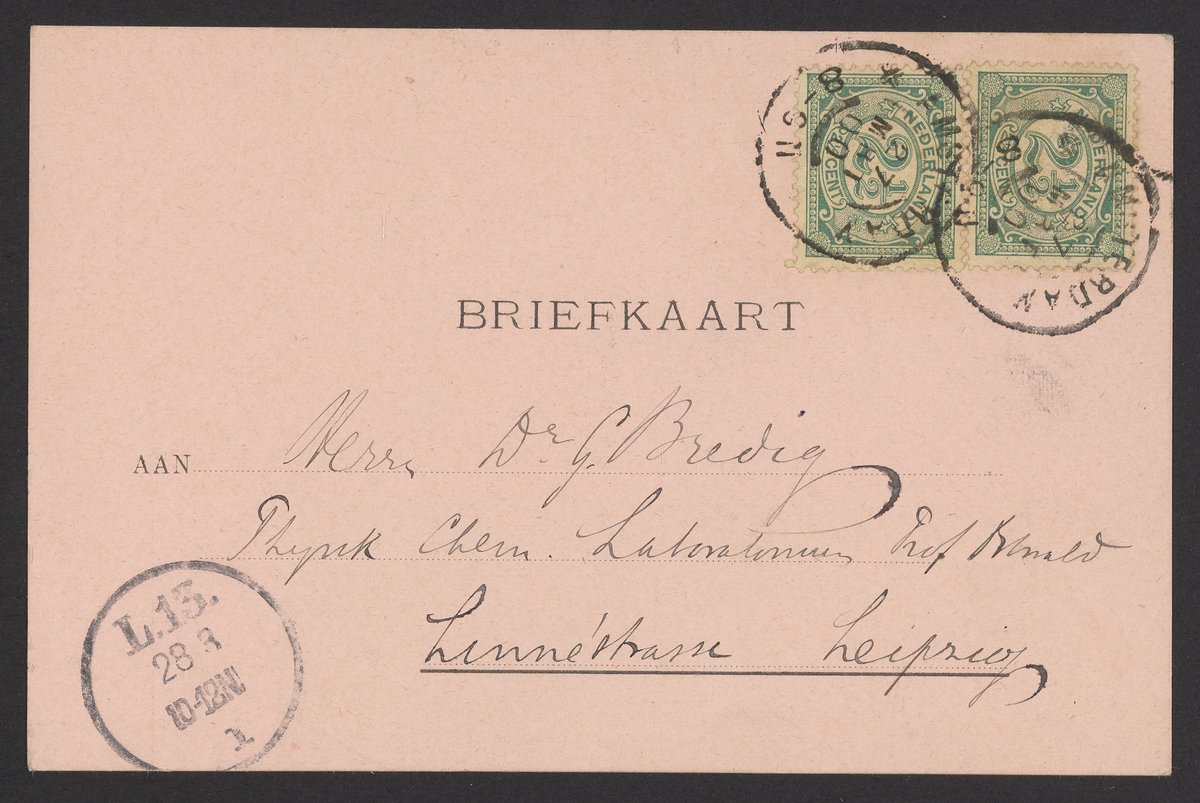 NEDERLAND
2½
CENT
NEDERLAND
2½
CENT
AMSTERDAM
AMSTERDAM
BRIEFKAART
AAN Herrn Dr G. Bredig
Physik Chem. Laboratorium Prof Ostwald
Linnéstrasse Leipzig
L.13.
28 3
10-12N
1